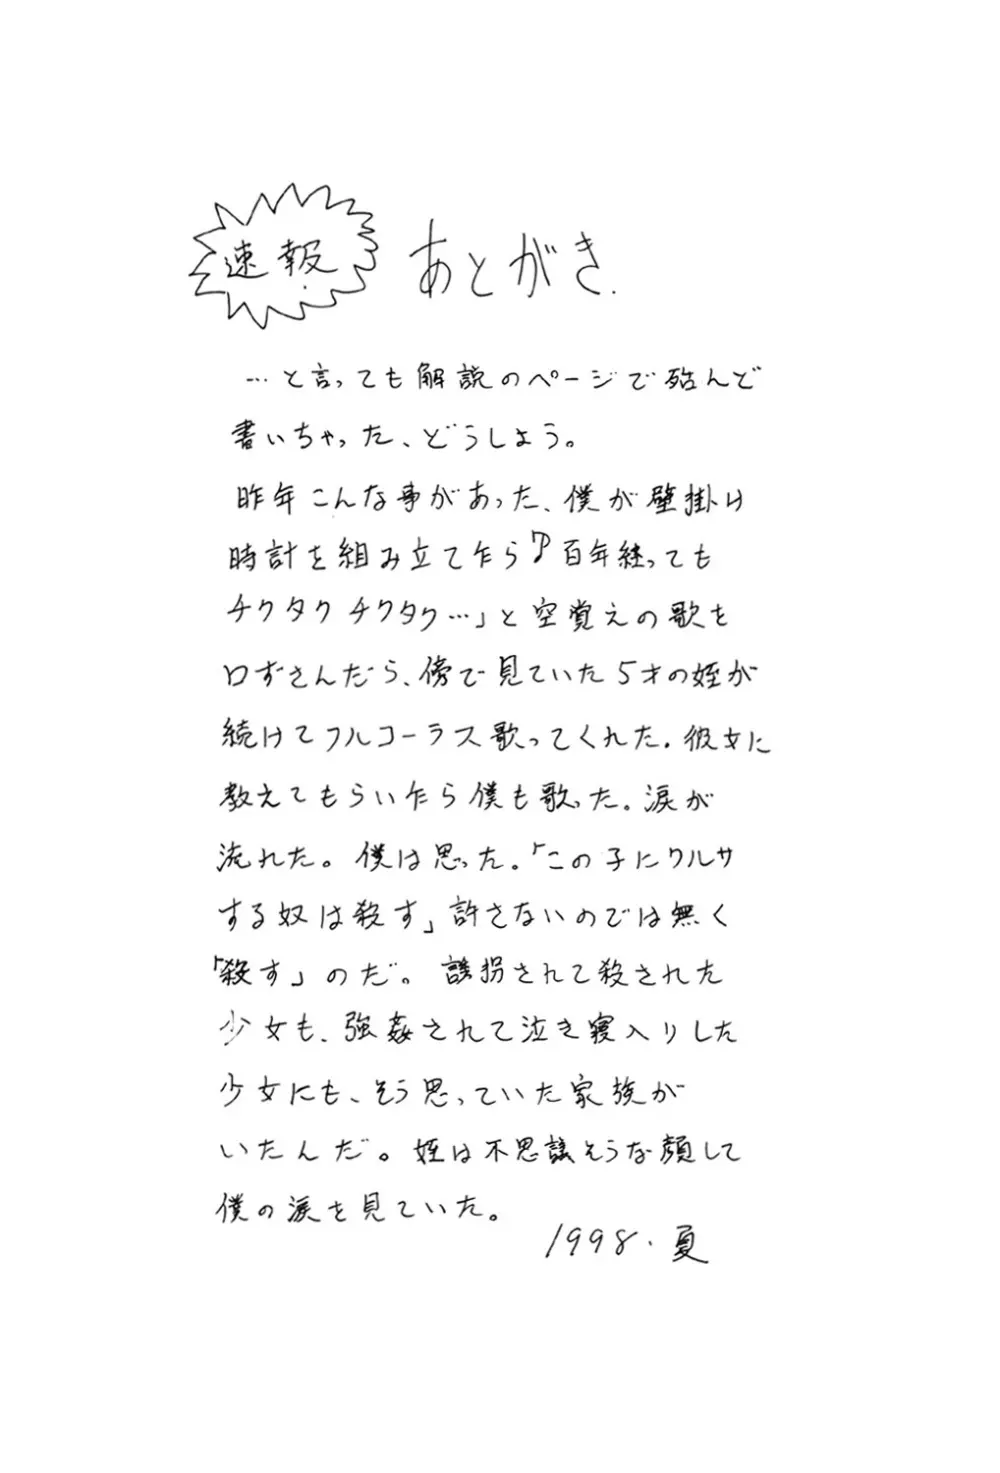 速報
あとがき.
…と言っても解説のページで殆んど
書いちゃった、どうしよう。
昨年こんな事があった、僕が壁掛け
時計を組み立て乍ら♪百年経っても
チクタクチクタク…」と空覚えの歌を
口ずさんだら、傍で見ていた5才の姪が
続けてフルコーラス歌ってくれた。彼女に
教えてもらい乍ら僕も歌った。涙が
流れた。僕は思った。「この子にワルサ
する奴は殺す」許さないのでは無く
「殺す」のだ。誘拐されて殺された
少女も、強姦されて泣き寝入りした
少女にも、そう思っていた家族が
いたんだ。姪は不思議そうな顔して
僕の涙を見ていた。
1998.夏